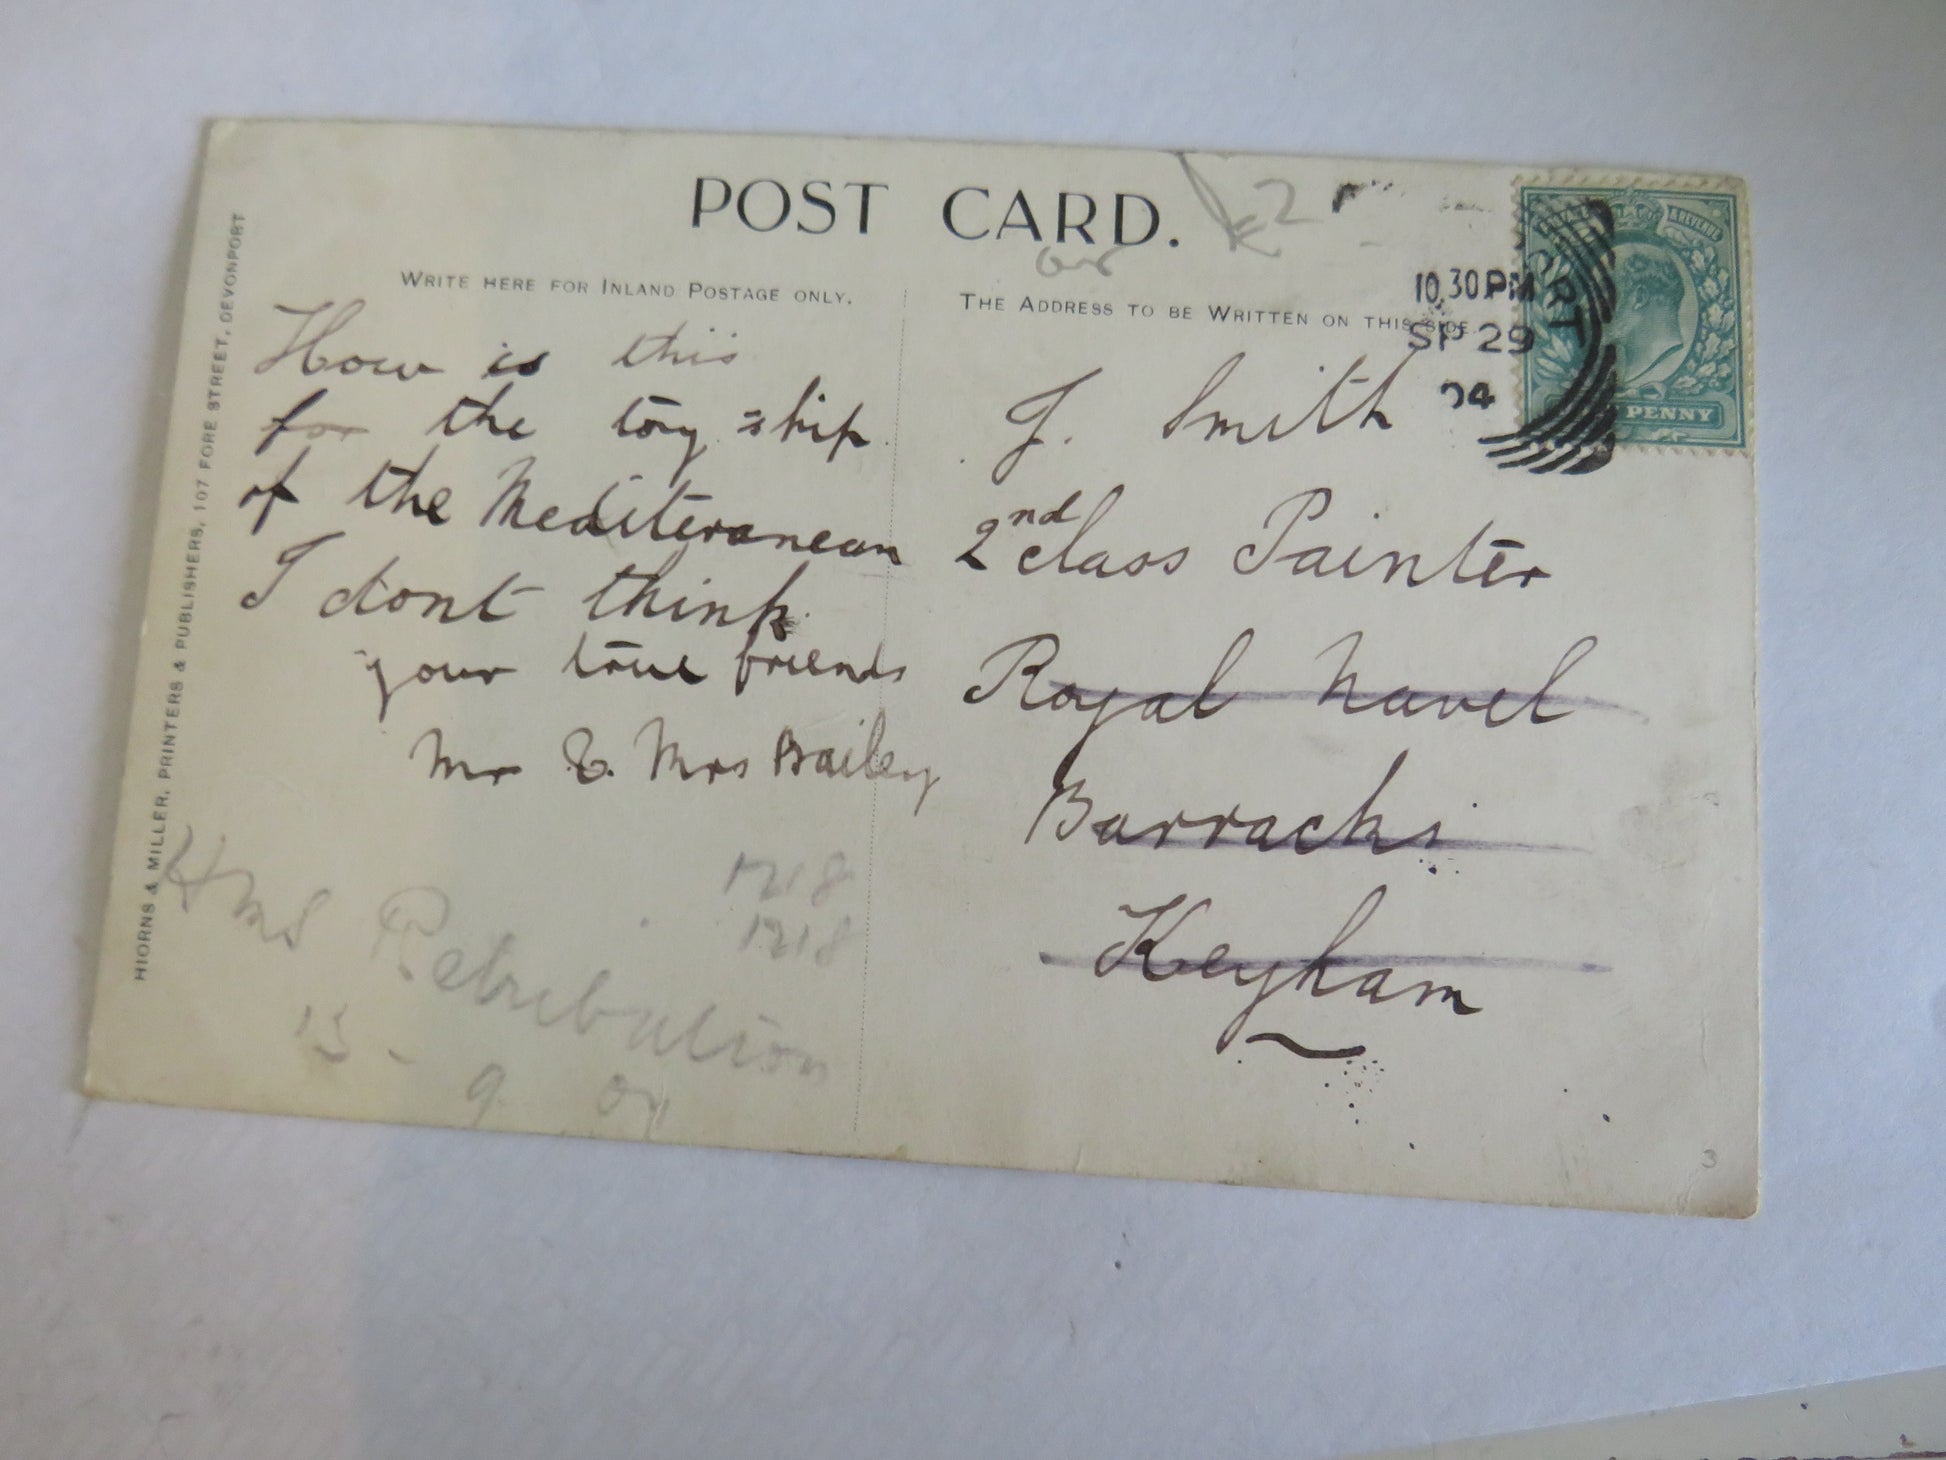 POST CARD.
WRITE HERE FOR INLAND POSTAGE ONLY.
THE ADDRESS TO BE WRITTEN ON THIS SIDE.
HIORNS & MILLER, PRINTERS & PUBLISHERS, 107 FORE STREET, DEVONPORT
How is this
for the toy ship
of the Mediteranean
I dont think
your true friends
Mr & Mrs Bailey
HMS Retribution
1718
1718
10.30PM
SP 29
04
PENNY
J. Smith
2nd class Painter
Royal Navel
Barracks
Keyham
3